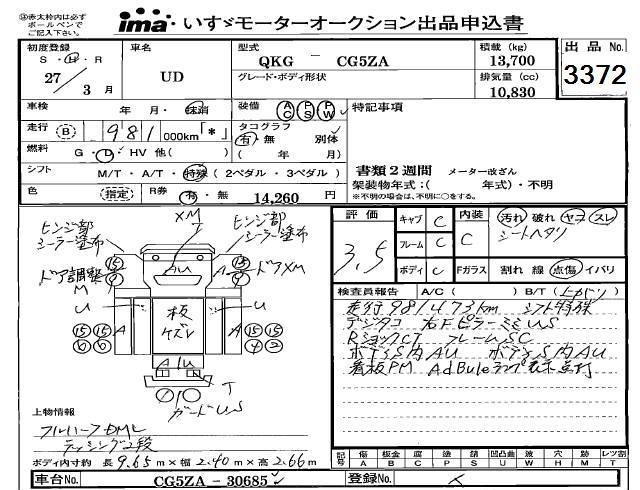 ㊟赤太枠内は必ず
ボールペンで
ご記入下さい。
ima いすゞモーターオークション出品申込書
初度登録 車名 型式 積載 (kg) 出品 No.
S ・ H ・ R
27 / 3 月
UD
QKG － CG5ZA
13,700
グレード・ボディ形状
排気量 (cc)
10,830
3372
車検 年 月・抹消
装備 AC PS PW
特記事項
走行 (B) 981 000km「*」
タコグラフ
有・無 別体
( 年 月)
燃料 G・D・HV 他( )
シフト M/T・A/T・特殊 ( 2ペダル・3ペダル )
書類２週間 メーター改ざん
架装物年式：( 年式)・不明
※不明の場合は、年式欄に不明に○をする。
色 (指定) R券 有・無 14,260 円
ヒンジ部
シーラー塗布
XM
ヒンジ部
シーラー塗布
ドア調整
ドアXM
M
U
A
板
ケズレ
A
U
AU
A/U
T
ガードUS
上物情報
フルハーフDML
ラッシング2段
ボディ内寸約 長 9.65 m×幅 2.40 m×高 2.66 m
評価 3.5
キャブ C
フレーム C
ボディ C
内装 C
汚れ 破れ ヤコ スレ
シートヘタリ
Fガラス 割れ 線 点傷 イバリ
検査員報告 A/C ( ) B/T (上かぶり)
走行981473km シフト特殊
デジタコ 右FピラーミミUS
RショックCT フレームSC
ボデS内AU ボデS内AU
看板PM AdBuleランプ表示点灯
記号 傷 A 板金 B 腐 C 塗 P 錆 S 凹凸曲 U 波 W 穴 H 跡 M 補 X レツ割 T
車台No. CG5ZA - 30685
登録No.